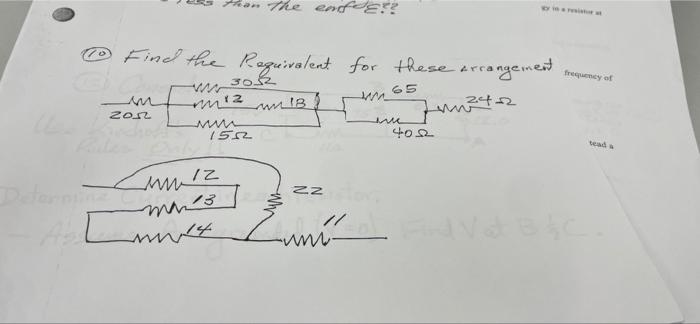 than the end
gy in a resistor at
(10) Find the Requivalent for these arrangement
frequency of
30Ω
12 18
65
24Ω
20Ω
15Ω
40Ω
tead a
12
22
13
11
14
Determine
Find V at B & C.